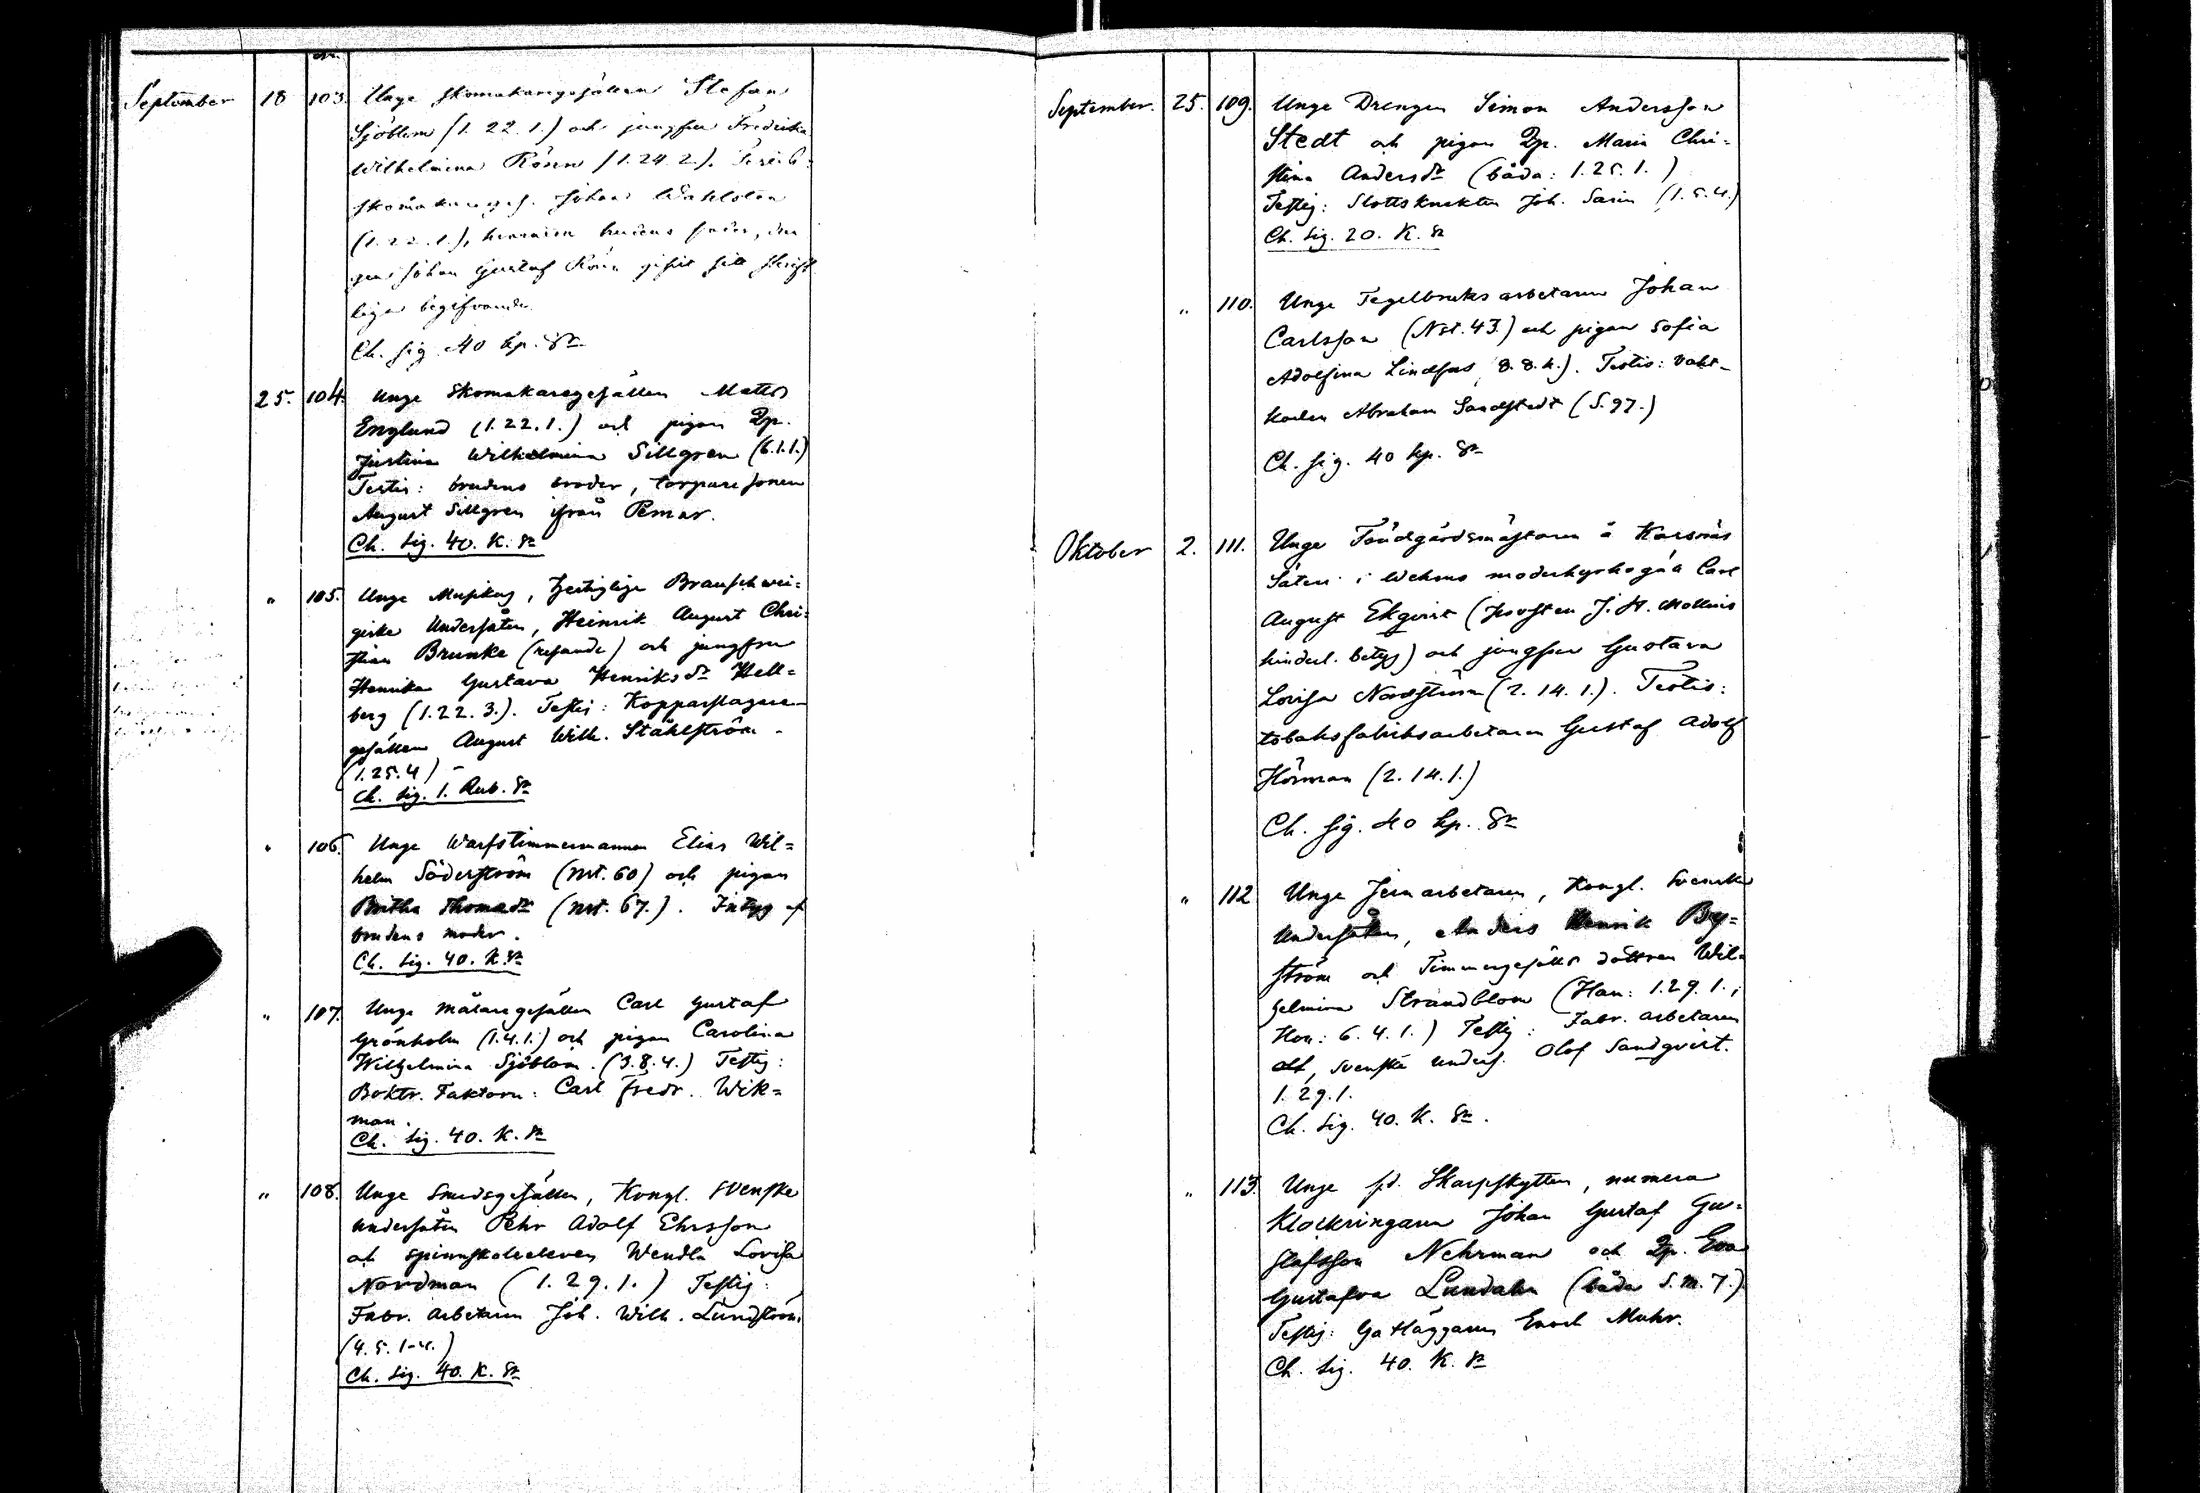 September 18 103. Unge skomakaregesällen Stefan
Sjöblom (1. 22. 1.) och jungfru Fredrika
Wilhelmina Rönn (1. 24. 2.).
skomakareges. Johan Wahlsten
(1. 22. 1.), brudens fader,
Johan Gustaf Rönn gifvit sitt skrift
liga begifvande.
Ch. sig. 40 kp. Sr
25. 104. Unge Skomakaregesällen Matts
Englund (1. 22. 1.) och pigan Dp.
Justina Wilhelmina Sillgren (6. 1. 1.)
Testis: brudens broder, torparesonen
August Sillgren ifrån Pemar.
Ch. Sig. 40. K. Sr
" 105. Unge Musikus, Hertiglige Braunschwei=
giske Undersåten, Heinrik August Chri=
stian Brunke (resande) och jungfru
Henrika Gustava Henriksdr Hell=
berg (1. 22. 3.). Testis: Kopparslagare
gesällen August Wilh. Ståhlström.
(1. 25. 4)
Ch. Sig. 1. Rub. Sr
" 106. Unge Warfstimmermannen Elias Wil=
helm Söderström (Nrt. 60) och pigan
Britha Thomasdr (Nrt. 67.). Intyg af
brudens moder.
Ch. Sig. 40. K. Sr
" 107. Unge målaregesällen Carl Gustaf
Grönholm (1. 4. 1.) och pigan Carolina
Wilhelmina Sjöblom. (3. 8. 4.) Testis:
Boktr. Faktorn: Carl Fredr. Wik=
man.
Ch. Sig. 40. K. Sr
" 108. Unge Smedsgesällen, Kongl. Svenske
undersåten Pehr Adolf Ehrsson
och Spinnskoleeleven Wendla Lovisa
Nordman (1. 29. 1.) Testis:
Fabr. arbetaren Joh. Wilh. Lundström
(4. 5. 1-4.)
Ch. Sig. 40. K. Sr
September. 25. 109. Unge Drengen Simon Andersson
Stedt och pigan Dp. Maria Chri=
stina Andersdr (båda: 1. 25. 1.)
Testis: Slottsknekten Joh. Sarin (1. 5. 4.)
Ch. Sig. 20. K. Sr
" 110. Unge Tegelbruksarbetaren Johan
Carlsson (Nst. 43.) och pigan Sofia
Adolfina Lindfors 8. 8. 4.). Testis: vakt-
karlen Abraham Sandstedt (S. 97.)
Ch. sig. 40 kp. Sr
Oktober 2. 111. Unge Trädgårdsmästaren å Karsnäs
Säteri i Wehmo moderkyrkogäll Carl
August Ekqvist (Prosten J. H. Mollius
hinderl. betyg) och jungfru Gustava
Lovisa Nordström (2. 14. 1.). Testis:
tobaksfabriksarbetaren Gustaf Adolf
Hörman (2. 14. 1.)
Ch. sig. 40 kp. Sr
" 112 Unge Jernarbetaren, Kongl. Svenske
Undersåten, Anders Henrik By=
ström och Timmergesälls dottren Wil=
helmina Strandblom (Han: 1. 29. 1.;
Hon: 6. 4. 1.) Testis: Fabr. arbetaren
Svenske unders. Olof Sandqvist.
1. 29. 1.
Ch. Sig. 40. K. Sr.
" 113. Unge fd. Skarpskytten, numera
Klockringaren Johan Gustaf Gu=
stafsson Nehrman och Dp. Eva
Gustafva Lundahn (båda S. M. 7.)
Testis: Gatläggaren Enoch Muhr.
Ch. Sig. 40. K. Sr